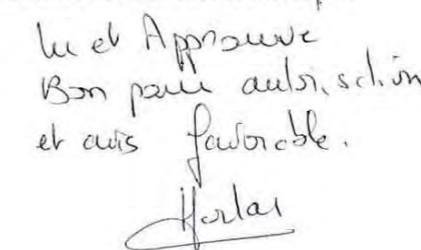 lu et Approuve
Bon pour autorisation
et avis favorable.